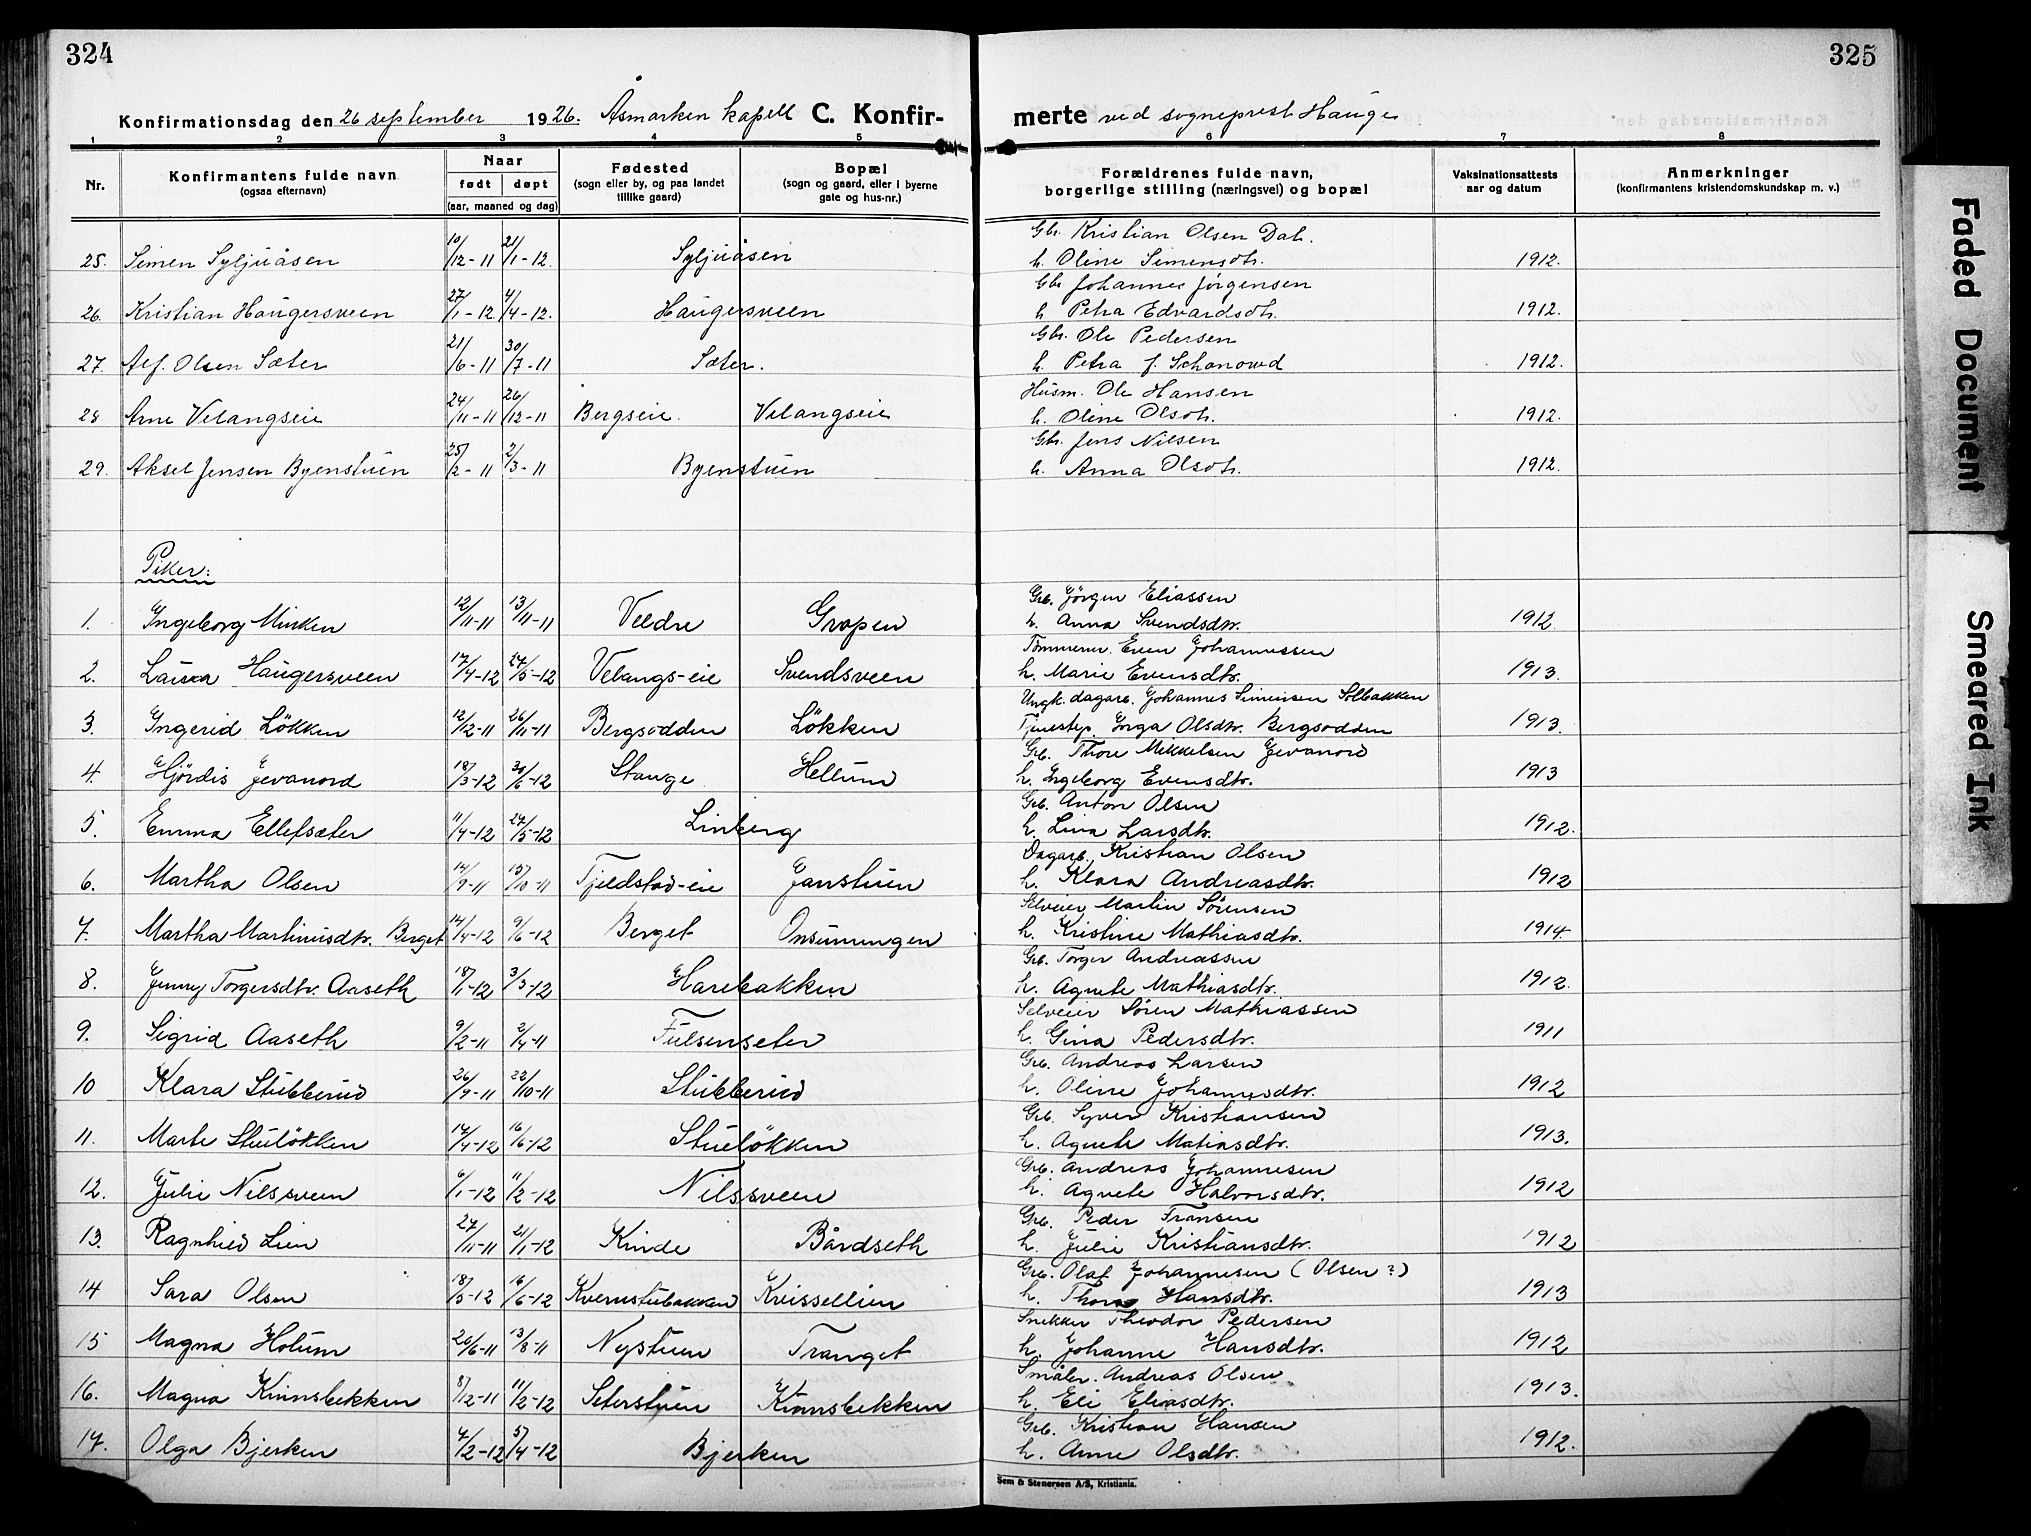 324
325
Konfirmationsdag den 26 september 1926. Åsmarken kapell C. Konfir-
merte ved sogneprest Hauge
1 2 3 4 5 6 7 8
Nr.
Konfirmantens fulde navn
(ogsaa efternavn)
Naar
født døpt
(aar, maaned og dag)
Fødested
(sogn eller by, og paa landet
tillike gaard)
Bopæl
(sogn og gaard, eller i byerne
gate og hus-nr.)
Forældrenes fulde navn,
borgerlige stilling (næringsvei) og bopæl
Vaksinationsattests
aar og datum
Anmerkninger
(konfirmantens kristendomskundskap m. v.)
Gbr. Kristian Olsen Dah.
25. Simen Syljuåsen 10/12-11 21/1-12. Syljuåsen h. Oline Simensdtr. 1912.
Gbr Johannes Jørgensen
26. Kristian Haugersveen 27/1-12 4/4-12. Haugersveen h Petra Edvardsdtr. 1912.
Gbr. Ole Pedersen
27. Alf. Olsen Sæter 21/6-11 30/7-11 Sæter. h. Petra f. 1912.
Husm. Ole Hansen
28 Arne Velangseie 24/11-11 26/12-11 Bergseie. Velangseie h. Oline Olsdtr. 1912.
Gbr. Jens Nilsen
29. Aksel Jensen Byenstuen 25/2-11 2/3-11 Byenstuen h. Anna Olsdtr. 1912.
Piker:
Grb. Jörgen Eliassen
1. Ingeborg Minken 12/11-11 13/11-11 Veldre Gropen h. Anna Svendsdtr. 1912.
Tömmerm. Even Johannessen
2. Laura Haugersveen 17/4-12 27/5-12 Velangs-eie Svendsveen h. Marie Evensdtr. 1913.
Ungk. dagarb. Johannes Simensen Solbakken
3. Ingerid Lökken 12/12-11 26/11-11 Bergsodden Lökken Tjenestep. Inga Olsdtr. Bergsodden 1913.
Grb. Thore Mikkelsen Jevanord
4. Hjördis Jevanord 18/3-12 30/6-12 Stange Hellum h. Ingeborg Evensdtr. 1913
Grb. Anton Olsen
5. Emma Ellefsæter 11/4-12 27/5-12 Linberg h. Lina Larsdtr. 1912.
Dagarb. Kristian Olsen
6. Martha Olsen 14/9-11 15/10-11 Tjeldstad-eie Janstuen h. Klara Andreasdtr. 1912
Selveier Martin Sörensen
7. Martha Martinusdtr. Berget 14/4-12 9/6-12 Berget Onsumengen h. Kristine Mathiasdtr. 1914.
Grb. Torger Andreassen
8. Jenny Torgersdtr. Aaseth 18/1-12 3/3-12 Harebakken h. Agnete Mathiasdtr. 1912.
Selveier Sören Mathiassen
9. Sigrid Aaseth 9/2-11 2/4-11 Fulsenseter h. Gina Pedersdtr. 1911
Grb. Andreas Larsen
10 Klara Stubberud 26/9-11 22/10-11 Stubberud h. Oline Johannesdtr. 1912
Grb. Syver Kristiansen
11. Marte Stulökken 14/4-12 16/6-12 Stuelökken h. Agnete Matiasdtr. 1913.
Grb. Andreas Johannesen
12. Julie Nilssveen 6/1-12 11/2-12 Nilssveen h. Agnete Halvorsdtr. 1912
Grb. Peder Fransen
13. Ragnhild Lien 27/11-11 21/1-12 Kinde Bårdseth h. Julie Kristiansdtr. 1912
Grb. Olaf Johannesen (Olsen?)
14 Sara Olsen 18/5-12 16/6-12 Kvernstubakken Kvissellien h. Thora Hansdtr. 1913
Snekker Theodor Pedersen
15 Magna Holum 26/6-11 13/8-11 Nystuen Tranget h. Johanne Hansdtr. 1912
Småbr. Andreas Olsen
16. Magna Kinnsbekken 8/12-11 11/2-12 Seterstuen Kinnsbekken h. Eli Eliasdtr. 1913.
Grb. Kristian Hansen
17. Olga Bjerken 4/2-12 5/4-12 Bjerken h. Anne Olsdtr. 1912.
Sem & Stenersen A/S, Kristiania.
Faded Document
Smeared Ink